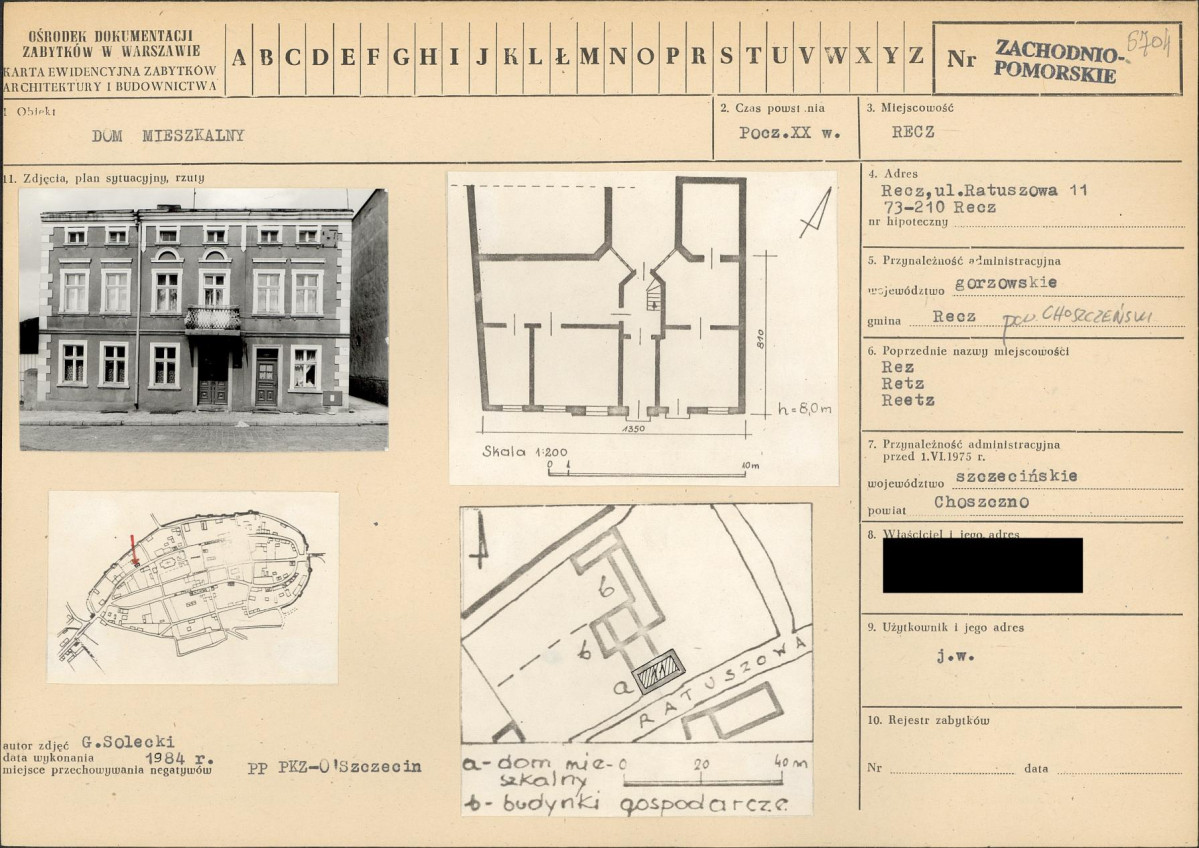 OŚRODEK DOKUMENTACJI
ZABYTKÓW W WARSZAWIE
KARTA EWIDENCYJNA ZABYTKÓW
ARCHITEKTURY I BUDOWNICTWA
A B C D E F G H I J K L Ł M N O P R S T U V W X Y Z
Nr ZACHODNIO-
POMORSKIE
6704
1 Obiekt
DOM MIESZKALNY
2. Czas powst .nia
Pocz.XX w.
3. Miejscowość
RECZ
11. Zdjęcia, plan sytuacyjny, rzuty
810
h=8,0m
1350
Skala 1:200
0 1 10m
b
b
a
RATUSZOWA
a- dom mie-
szkalny
0 20 40m
b- budynki gospodarcze
autor zdjęć G.Solecki
data wykonania 1984 r.
miejsce przechowywania negatywów PP PKZ-O'Szczecin
4. Adres
Recz,ul.Ratuszowa 11
73-210 Recz
nr hipoteczny
5. Przynależność administracyjna
województwo gorzowskie
gmina Recz pow. CHOSZCZEŃSKI
6. Poprzednie nazwy miejscowości
Rez
Retz
Reetz
7. Przynależność administracyjna
przed 1.VI.1975 r.
województwo szczecińskie
powiat Choszczno
8. Właściciel i jego adres
9. Użytkownik i jego adres
j.w.
10. Rejestr zabytków
Nr data